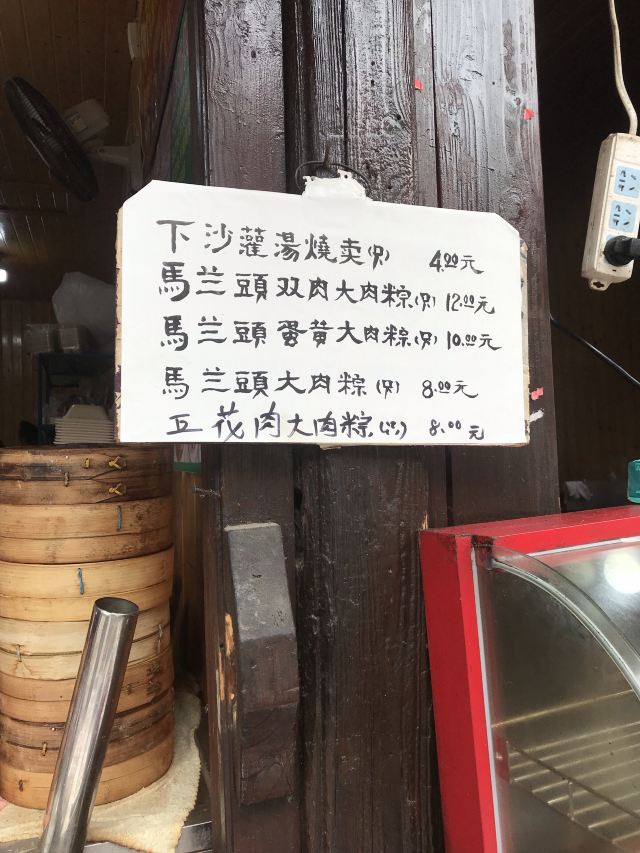 下沙灌湯燒卖(只) 4.00元
馬兰頭双肉大肉粽(只) 12.00元
馬兰頭蛋黄大肉粽(只) 10.00元
馬兰頭大肉粽(只) 8.00元
五花肉大肉粽(只) 8.00元